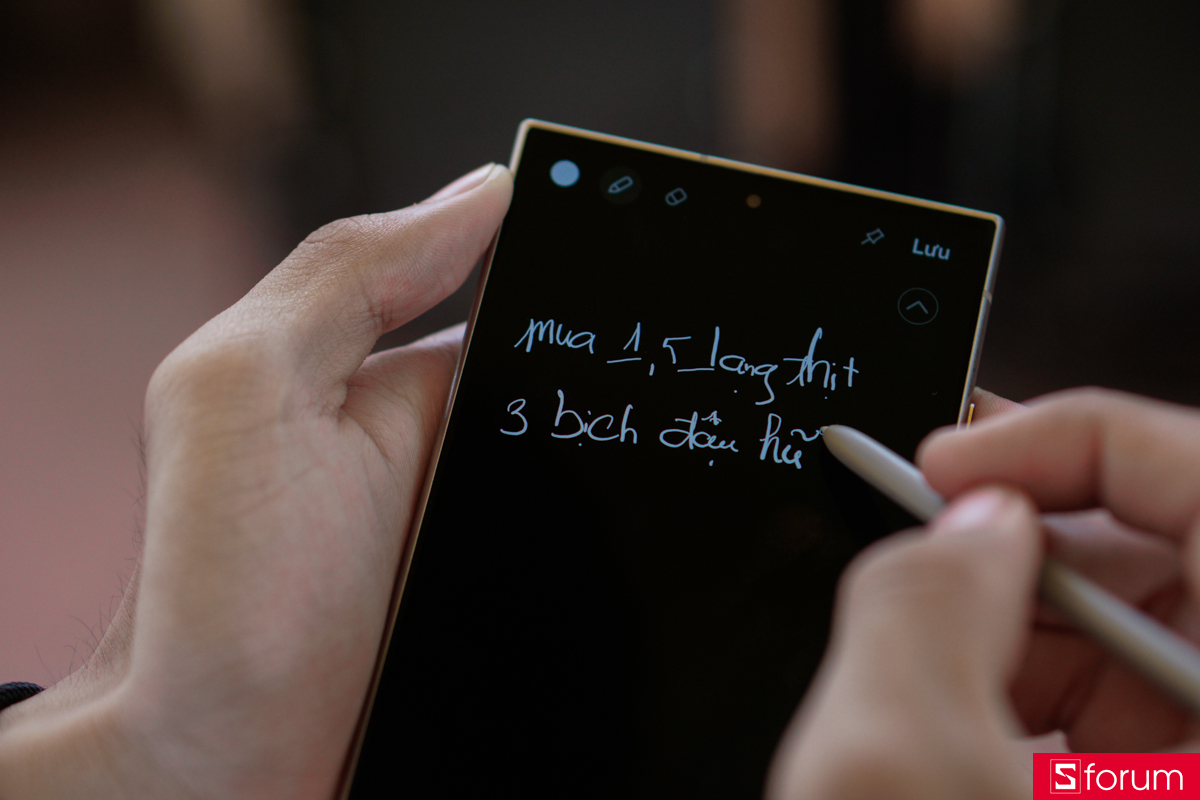 Lưu
mua 1,5 lạng thịt
3 bịch đậu hũ
Sforum